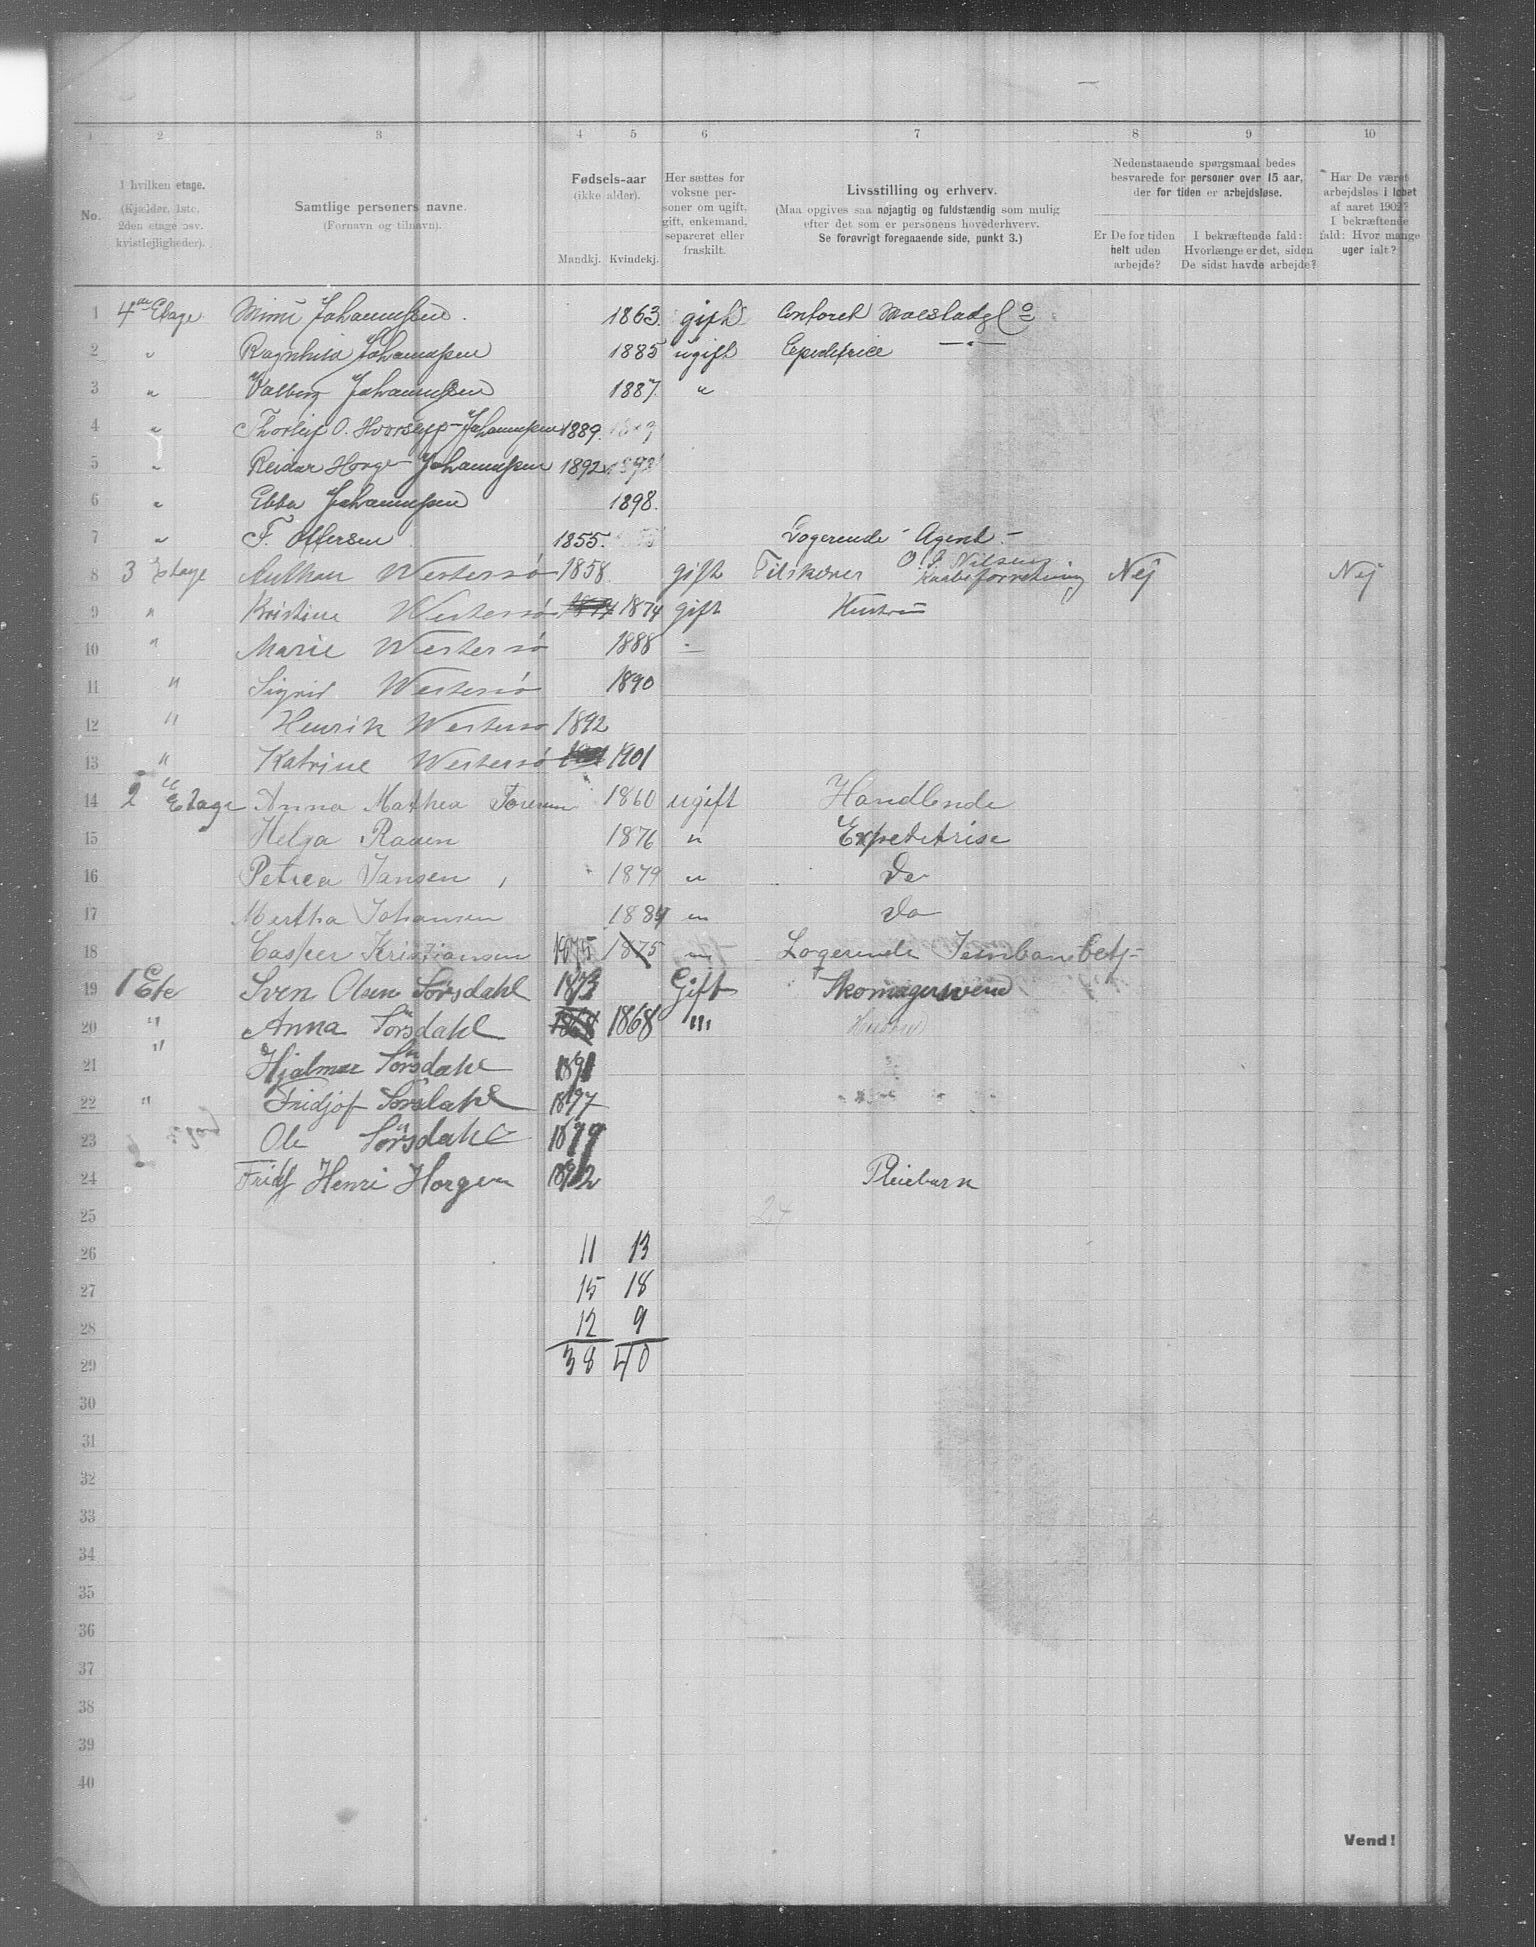 1 2 3 4 5 6 7 8 9 10
No.
I hvilken etage.
(Kjælder, 1ste,
2den etage osv.
kvistlejligheder).
Samtlige personers navne.
(Fornavn og tilnavn).
Fødsels-aar
(ikke alder).
Mandkj. Kvindekj.
Her sættes for
voksne per-
soner om ugift,
gift, enkemand,
separeret eller
fraskilt.
Livsstilling og erhverv.
(Maa opgives saa nøjagtig og fuldstændig som mulig
efter det som er personens hovederhverv.
Se forøvrigt foregaaende side, punkt 3.)
Nedenstaaende spørgsmaal bedes
besvarede for personer over 15 aar,
der for tiden er arbejdsløse.
Er De for tiden
helt uden
arbejde?
I bekræftende fald:
Hvorlænge er det, siden
De sidst havde arbejde?
Har De været
arbejdsløs i løbet
af aaret 1902?
I bekræftende
fald: Hvor mange
uger ialt?
1 4de Etage Mimi Johannessen. 1863. gift
2 " Ragnhild Johannessen 1885 ugift Expeditrice —"—
3 " Valborg Johannessen 1887. "
4 " Thorleif O. Johannessen 1889.
5 " Reidar Johannessen 1892
6 " Ebba Johannessen 1898.
7 " F. Offersen 1855. Logerende - Agent -
8 3 Etage Westersø 1858. gift Tilskærer O. J. Nilsens Kaabeforretning Nej Nej
9 " Kristine Westersø 1874 gift Hustru
10 " Marie Westersø 1888 -
11 " Sigrid Westersø 1890
12 " Henrik Westersø 1892
13 " Katrine Westersø 1901
14 2 Etage Anna Mathea 1860 ugift Handlende
15 Helga Raaen 1876 " Expeditrise
16 Petrea Jansen 1879 " Do
17 Mertha Johansen 1884 " Do
18 Casper Kristiansen 1875 1875 " Logerende Jernbanebetj-
19 1 Ete Sven Olsen Sørsdahl 1873 Gift Skomagersvend
20 " Anna Sørsdahl 1868 1868 " Hustru
21 " Hjalmar Sørsdahl 1891
22 " Fridjof Sørsdahl 1897
23 Ole Sørsdahl 1879
24 Fridf Henri Horgen 1892 Pleiebarn
25 24
26 11 13
27 15 18
28 12 9
29 38 40
30
31
32
33
34
35
36
37
38
39
40
Vend!